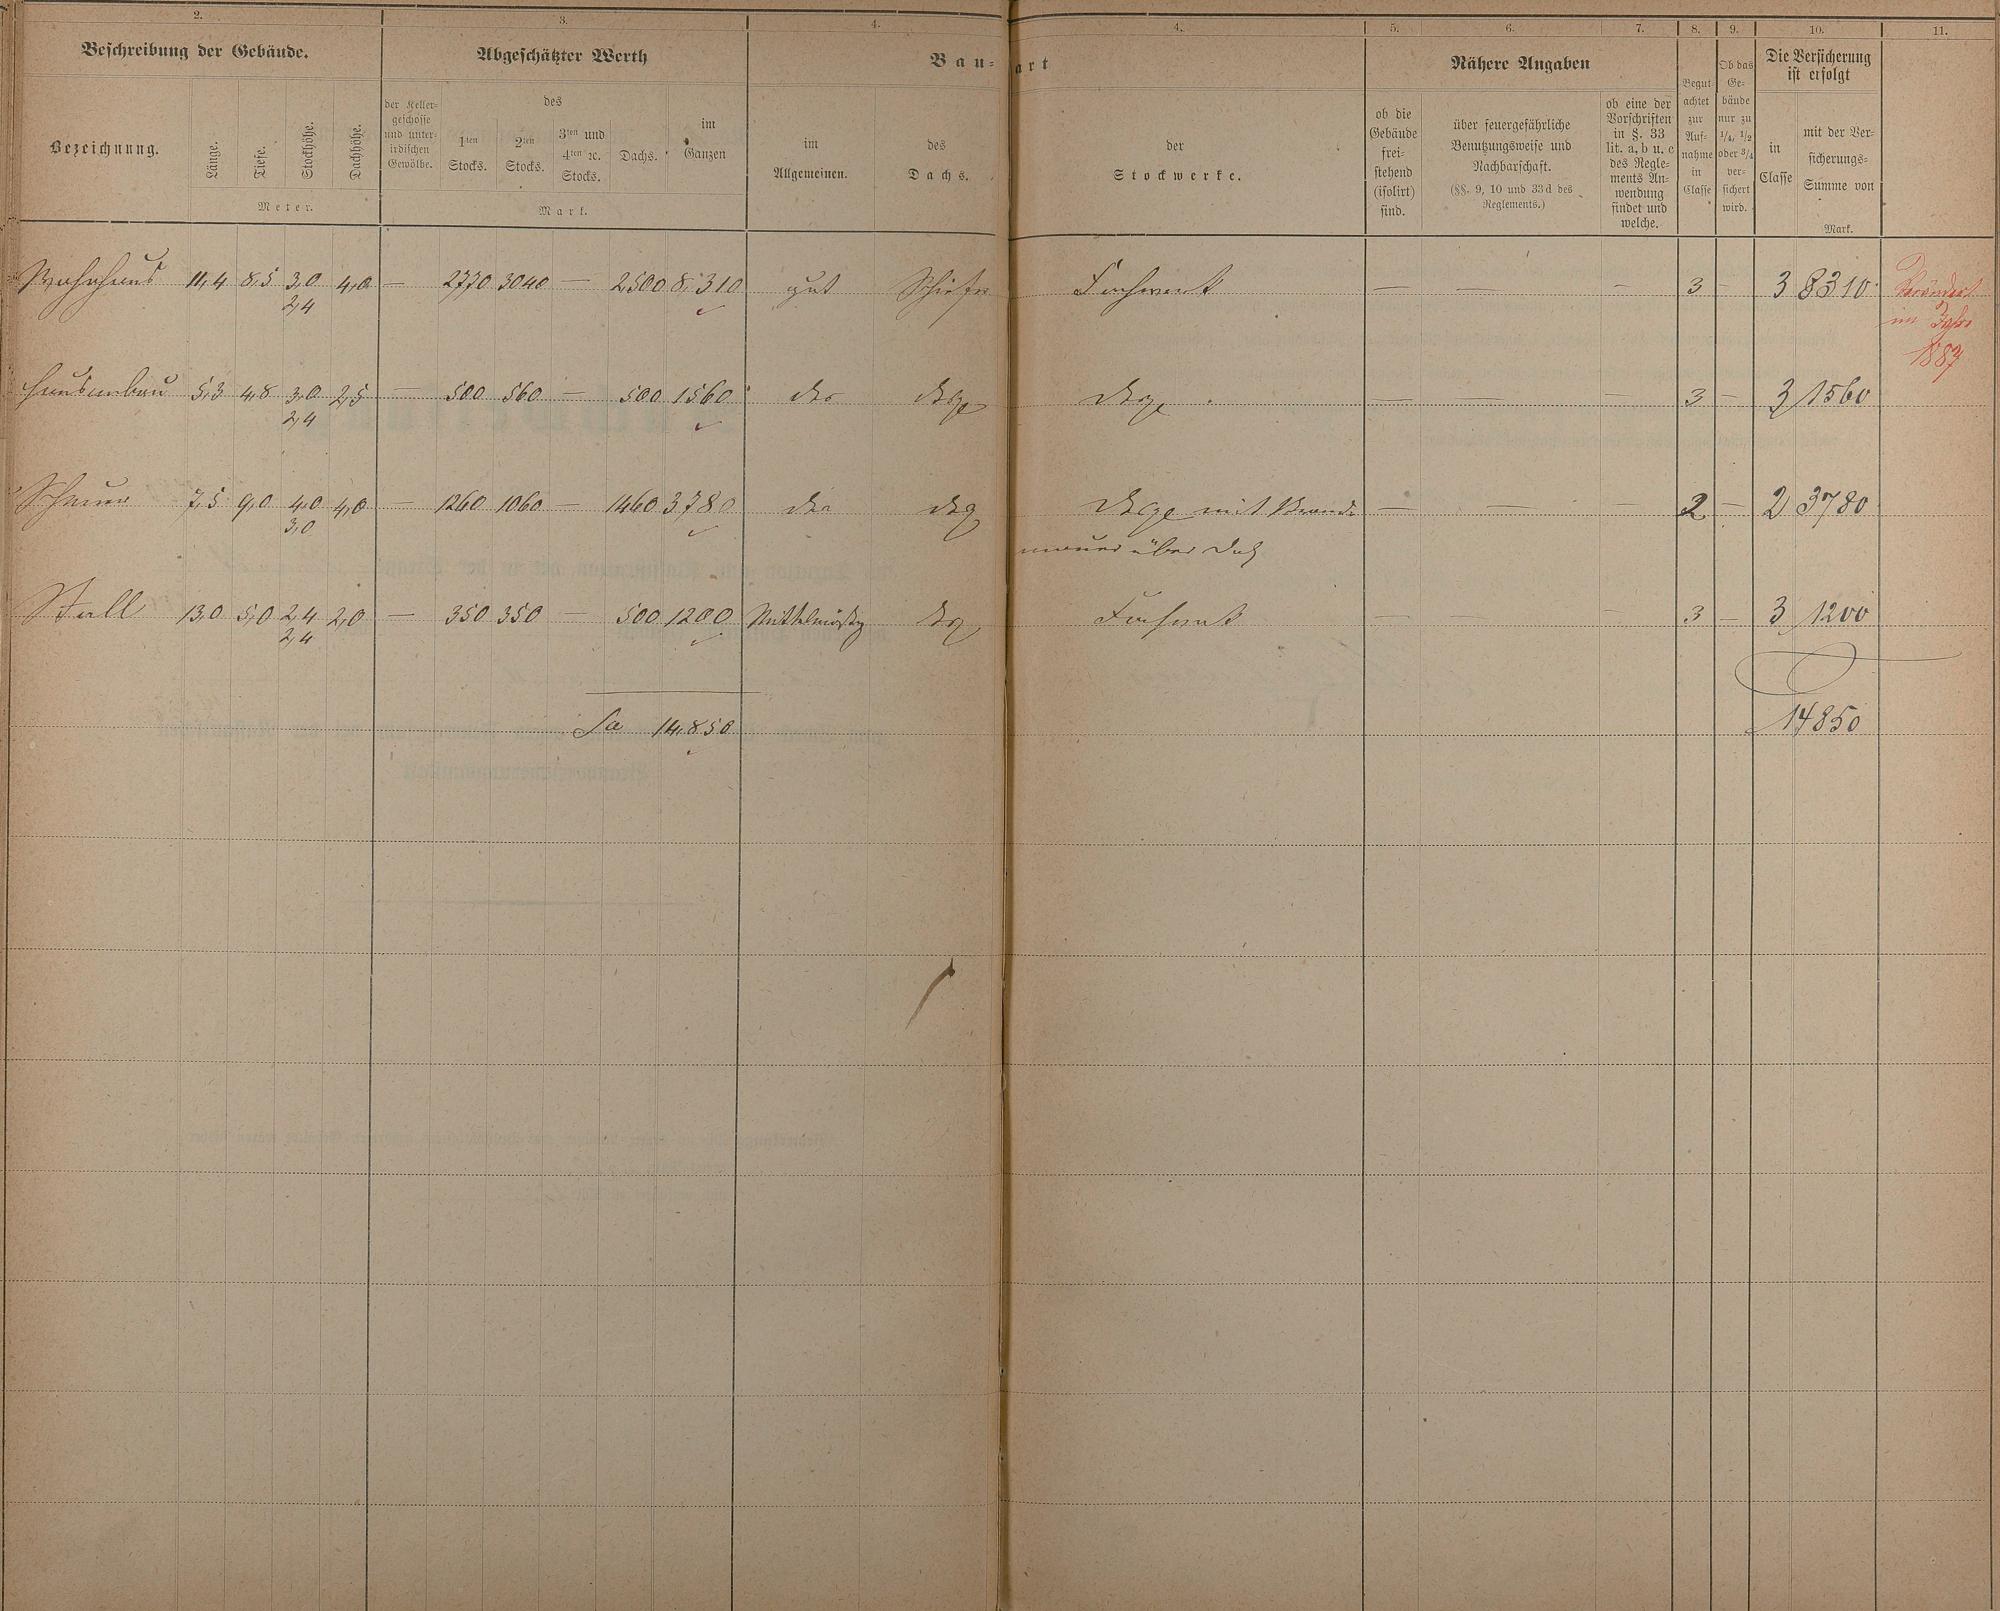 2. 3. 4. 4. 5. 6. 7. 8. 9. 10. 11.
Beschreibung der Gebäude. Abgeschätzter Werth Bau- art Nähere Angaben Die Versicherung
ist erfolgt
Bezeichnung.
Länge.
Tiefe.
Stockhöhe.
Dachhöhe.
Meter.
der Keller-
geschosse
und unter-
irdischen
Gewölbe.
des
1ten
Stocks.
2ten
Stocks.
3ten und
4ten ꝛc.
Stocks.
Dachs.
im
Ganzen
Mark.
im
Allgemeinen.
des
Dachs.
der
Stockwerke.
ob die
Gebäude
frei-
stehend
(isolirt)
sind.
über feuergefährliche
Benutzungsweise und
Nachbarschaft.
(§§. 9, 10 und 33d des
Reglements.)
ob eine der
Vorschriften
in §. 33
lit. a, b u. c
des Regle-
ments An-
wendung
findet und
welche.
Begut-
achtet
zur
Auf-
nahme
in
Classe
Ob das
Ge-
bäude
nur zu
1/4, 1/2
oder 3/4
ver-
sichert
wird.
in
Classe
mit der Ver-
sicherungs-
Summe von
Mark.
Wohnhaus 11,4 8,5 3,0 4,0 — 2770 3040 — 2500 8,310 gut Schiefer Fachwerk — — — 3 — 3 8310 Verändert
2,4 im Jahre
1887
Hausanbau 5,3 4,8 3,0 2,5 — 500 560 — 500 1560 do dsge dsge — — — 3 — 3 1560
2,4
Scheuer 7,5 9,0 4,0 4,0 — 1260 1060 — 1460 3780 do dsg dsge mit Brand- — — — 2 — 2 3780
3,0 mauer über Dach
Stall 13,0 5,0 2,4 2,0 — 350 350 — 500 1200 Mittelmäßig dsg Fachwerk — — — 3 — 3 1200
2,4
Sa 14,850 14850